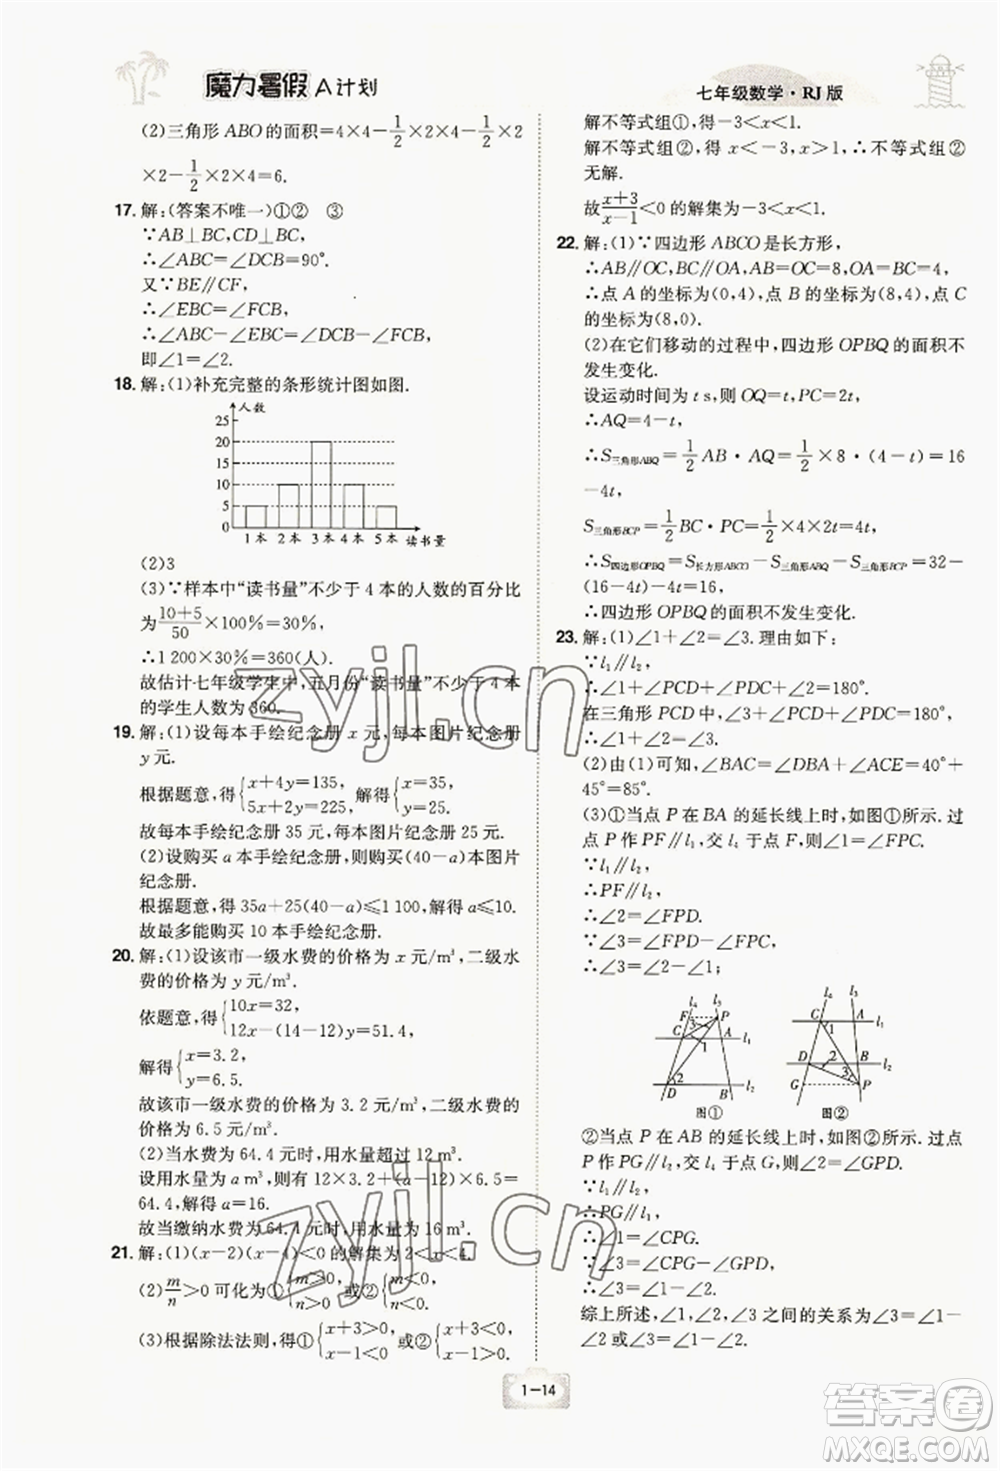 魔力暑假 A计划
七年级数学·RJ版
(2)三角形ABO的面积=4×4-1/2×2×4-1/2×2
×2-1/2×2×4=6.
17. 解:(答案不唯一)①② ③
∵AB⊥BC,CD⊥BC,
∴∠ABC=∠DCB=90°.
又∵BE∥CF,
∴∠EBC=∠FCB,
∴∠ABC-∠EBC=∠DCB-∠FCB,
即∠1=∠2.
18. 解:(1)补充完整的条形统计图如图.
人数
25
20
15
10
5
0
1本 2本 3本 4本 5本 读书量
(2)3
(3)∵样本中“读书量”不少于4本的人数的百分比
为(10+5)/50×100%=30%,
∴1 200×30%=360(人).
故估计七年级学生中,五月份“读书量”不少于4本
的学生人数为360.
19. 解:(1)设每本手绘纪念册x元,每本图片纪念册
y元.
根据题意,得{x+4y=135, 5x+2y=225, 解得{x=35, y=25.
故每本手绘纪念册35元,每本图片纪念册25元.
(2)设购买a本手绘纪念册,则购买(40-a)本图片
纪念册.
根据题意,得35a+25(40-a)≤1 100,解得a≤10.
故最多能购买10本手绘纪念册.
20. 解:(1)设该市一级水费的价格为x元/m³,二级水
费的价格为y元/m³.
依题意,得{10x=32, 12x-(14-12)y=51.4,
解得{x=3.2, y=6.5.
故该市一级水费的价格为3.2元/m³,二级水费的
价格为6.5元/m³.
(2)当水费为64.4元时,用水量超过12 m³.
设用水量为a m³,根据题意,得12×3.2+(a-12)×6.5=
64.4,解得a=16.
故当缴纳水费为64.4元时,用水量为16 m³.
21. 解:(1)(x-2)(x-4)<0的解集为2<x<4.
(2)m/n>0可化为①{m>0, n>0或②{m<0, n<0.
(3)根据除法法则,得①{x+3>0, x-1<0或②{x+3<0, x-1>0.
解不等式组①,得-3<x<1.
解不等式组②,得x<-3,x>1,∴不等式组②
无解.
故(x+3)/(x-1)<0的解集为-3<x<1.
22. 解:(1)∵四边形ABCO是长方形,
∴AB∥OC,BC∥OA,AB=OC=8,OA=BC=4,
∴点A的坐标为(0,4),点B的坐标为(8,4),点C
的坐标为(8,0).
(2)在它们移动的过程中,四边形OPBQ的面积不
发生变化.
设运动时间为t s,则OQ=t,PC=2t,
∴AQ=4-t,
∴S三角形ABQ=1/2AB·AQ=1/2×8·(4-t)=16
-4t,
S三角形BCP=1/2BC·PC=1/2×4×2t=4t,
∴S四边形OPBQ=S长方形ABCO-S三角形ABQ-S三角形BCP=32-
(16-4t)-4t=16,
∴四边形OPBQ的面积不发生变化.
23. 解:(1)∠1+∠2=∠3.理由如下:
∵l₁∥l₂,
∴∠1+∠PCD+∠PDC+∠2=180°.
在三角形PCD中,∠3+∠PCD+∠PDC=180°,
∴∠1+∠2=∠3.
(2)由(1)可知,∠BAC=∠DBA+∠ACE=40°+
45°=85°.
(3)①当点P在BA的延长线上时,如图①所示.过
点P作PF∥l₁,交l₄于点F,所以∠1=∠FPC.
∵l₁∥l₂,
∴PF∥l₂,
∴∠2=∠FPD.
∵∠3=∠FPD-∠FPC,
∴∠3=∠2-∠1.
l₄ l₃
F P
3
C A l₁
1
2
D B l₂
图①
l₄ l₃
C A l₁
1
D B l₂
2
3
G P
图②
②当点P在AB的延长线上时,如图②所示.过点
P作PG∥l₂,交l₄于点G,∴∠2=∠GPD.
∵l₁∥l₂,
∴PG∥l₁,
∴∠1=∠CPG.
∵∠3=∠CPG-∠GPD,
∴∠3=∠1-∠2.
综上所述,∠1,∠2,∠3之间的关系为∠3=∠1+
∠2或∠3=∠2-∠1或∠3=∠1-∠2.
1-14
zyjl.cn
zyjl.cn
答案圈
MXQE.COM